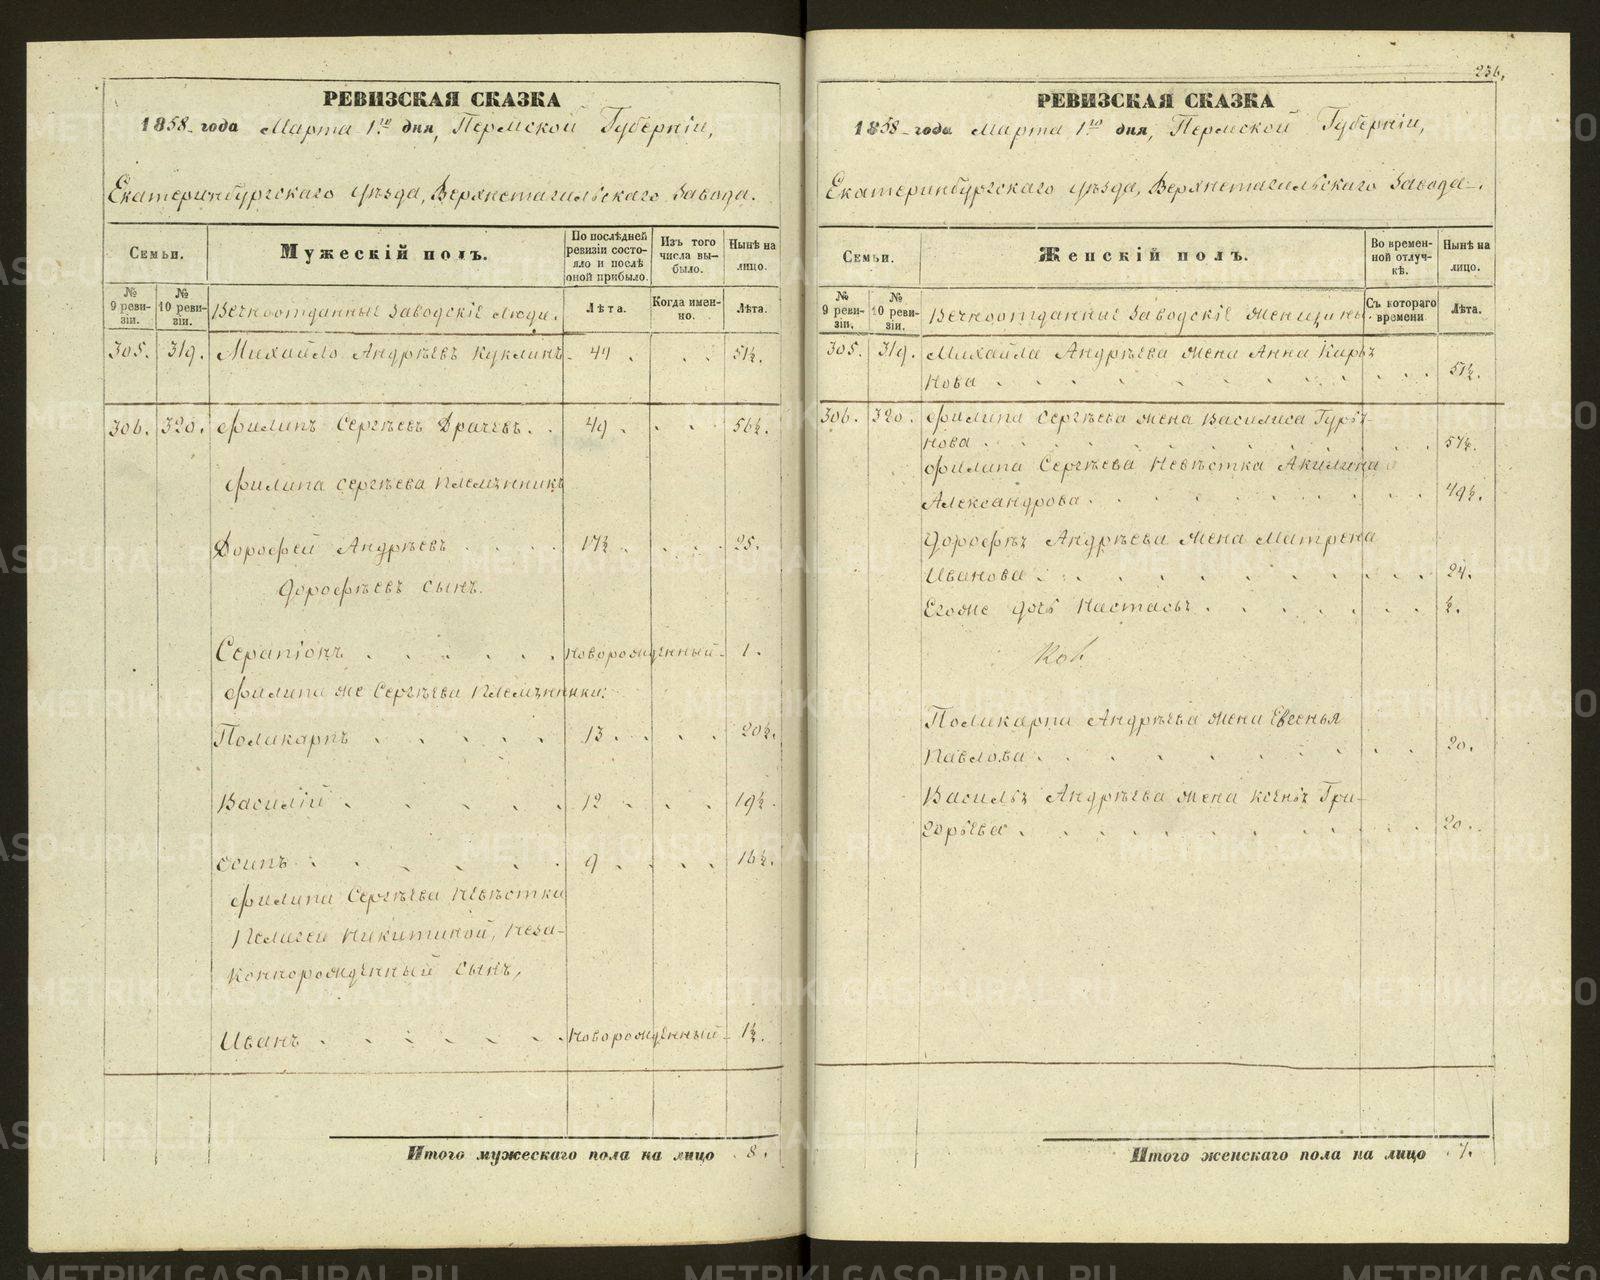 РЕВИЗСКАЯ СКАЗКА
1858 года Марта 1го дня, Пермской Губерніи,
Екатеринбургскаго уѣзда, Верхнетагильскаго Завода.
Семьи.
Мужескій полъ.
По послѣдней ревизіи состояло и послѣ оной прибыло.
Изъ того числа выбыло.
Нынѣ на лицо.
№ 9 ревизіи.
№ 10 ревизіи.
Вечноотданные Заводскіе люди.
Лѣта.
Когда именно.
Лѣта.
305. 319. Михайло Андрѣевъ Куклинъ 44 51½.
306. 320. Филипъ Сергѣевъ Драчевъ 49 56½.
Филипа Сергѣева племянникъ
Дорофей Андрѣевъ 17½ 25.
Дорофѣевъ сынъ.
Серапіонъ новорожденный 1.
Филипа же Сергѣева племянники:
Поликарпъ 13 20½.
Василій 12 19½.
Осипъ 9 16½.
Филипа Сергѣева невѣстки
Пелагеи Никитиной, неза-
коннорожденный сынъ,
Иванъ новорожденный 1½.
Итого мужескаго пола на лицо 8.
236.
РЕВИЗСКАЯ СКАЗКА
1858 года Марта 1го дня, Пермской Губерніи,
Екатеринбургскаго уѣзда, Верхнетагильскаго Завода.
Семьи.
Женскій полъ.
Во временной отлучкѣ.
Нынѣ на лицо.
№ 9 ревизіи.
№ 10 ревизіи.
Вечноотданные Заводскіе женщины.
Съ котораго времени
Лѣта.
305. 319. Михайла Андрѣева жена Анна Карпъ
нова 51½.
306. 320. Филипа Сергѣева жена Василиса Гурь-
нова 57½.
Филипа Сергѣева невѣстка Акилина
Александрова 49½.
Дорофѣя Андрѣева жена Матрена
Иванова 24.
Егоже дочь Настасья ½.
Поликарпа Андрѣева жена Евгенья
Павлова 20.
Василья Андрѣева жена Ксенья Гри-
горьева 20.
Итого женскаго пола на лицо 7.
METRIKI.GASO-URAL.RU